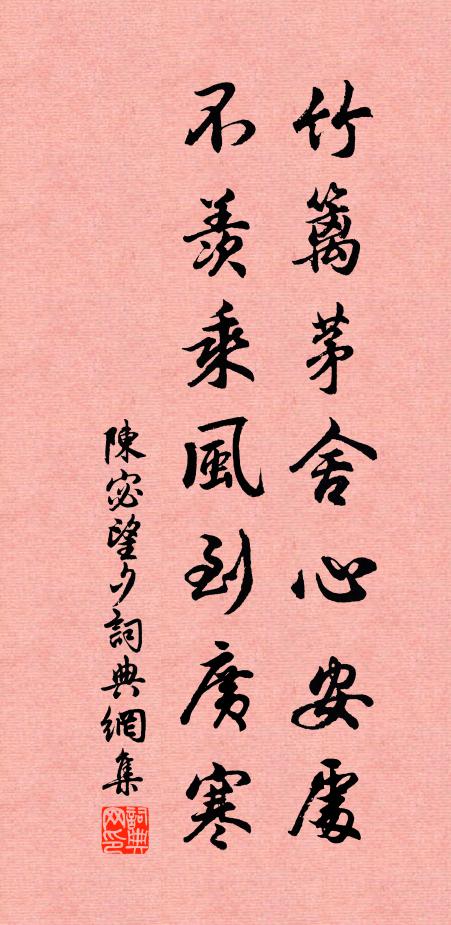 竹籬茅舍心安處
不羨乘風到廣寒
陳宓望夕詞典網集
詞典网印